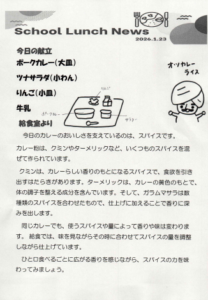 School Lunch News
2026.1.23
今日の献立
ポークカレー(大皿)
ツナサラダ(小わん)
りんご(小皿)
牛乳
給食室より
オーッカレー
ライス
今日のカレーのおいしさを支えているのは、スパイスです。
カレー粉は、クミンやターメリックなど、いくつものスパイスを混
ぜて作られています。
クミンは、カレーらしい香りのもとになるスパイスで、食欲を引き
出すはたらきがあります。ターメリックは、カレーの黄色のもとで、
体の調子を整える成分を含んでいます。そして、ガラムマサラは数
種類のスパイスを合わせたもので、仕上げに加えることで香りに深
みを出します。
同じカレーでも、使うスパイスや量によって香りや味は変わりま
す。給食では、味を見ながらその時に合わせてスパイスの量を調整
しながら仕上げています。
ひと口食べるごとに広がる香りを感じながら、スパイスの力を味
わってみましょう。